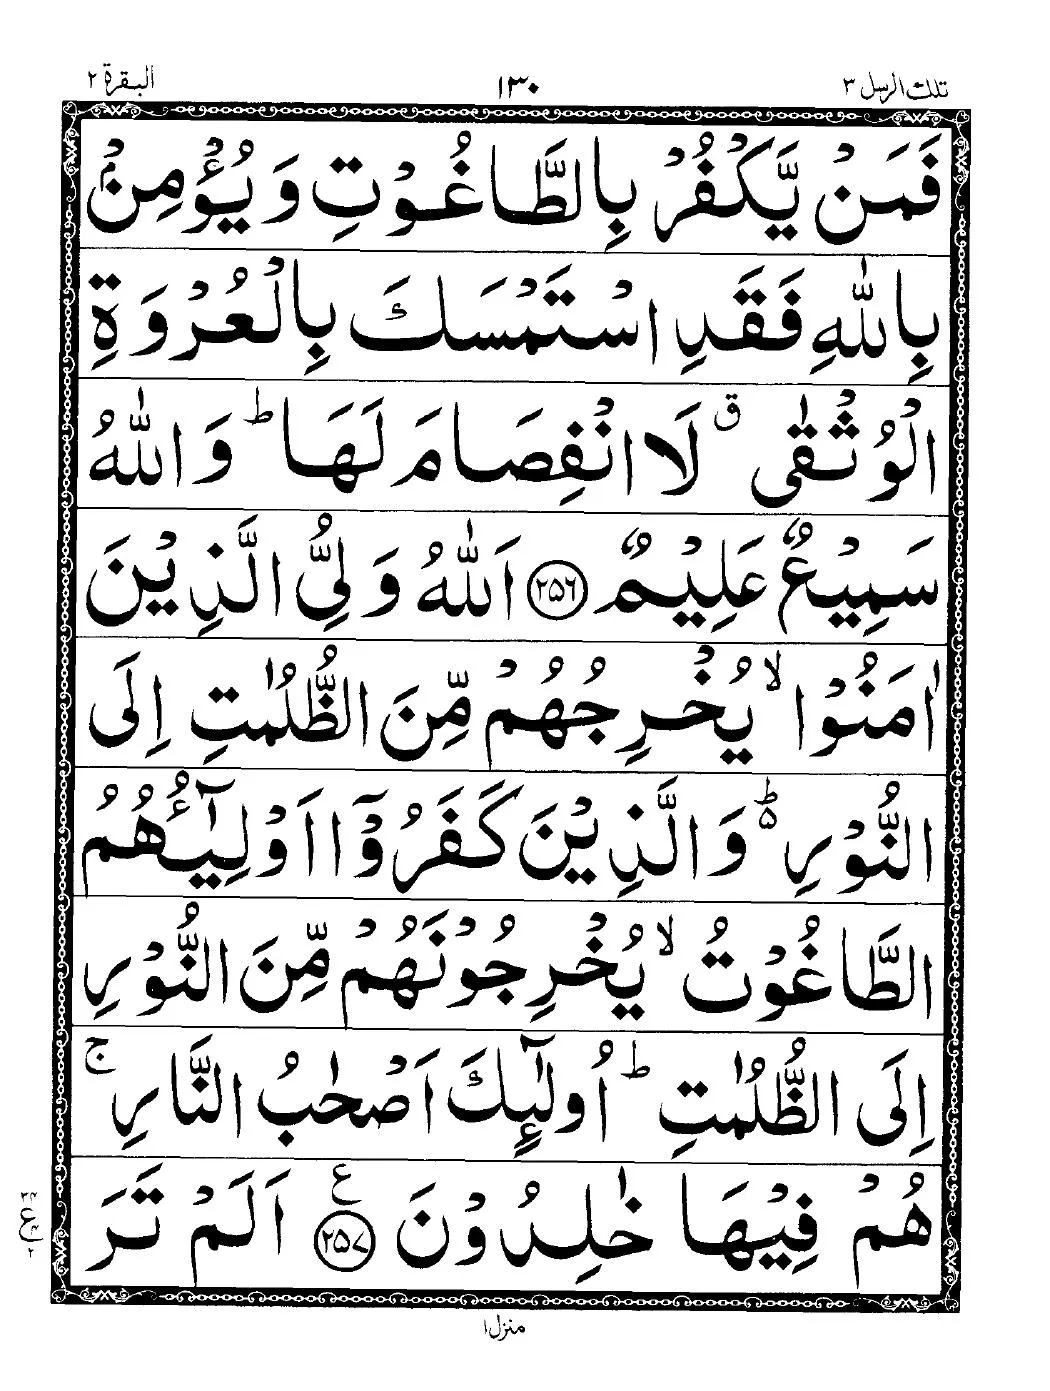 تلك الرسل ٣
١٣٠
البقرة ٢
فَمَنْ يَّكْفُرْ بِالطَّاغُوْتِ وَيُؤْمِنْۢ
بِاللّٰهِ فَقَدِ اسْتَمْسَكَ بِالْعُرْوَةِ
الْوُثْقٰى ۗ لَا انْفِصَامَ لَهَا ؕ وَاللّٰهُ
سَمِيْعٌ عَلِيْمٌ ٢٥٦ اَللّٰهُ وَلِيُّ الَّذِيْنَ
اٰمَنُوْا ۙ يُخْرِجُهُمْ مِّنَ الظُّلُمٰتِ اِلَى
النُّوْرِ ؕ۬ وَالَّذِيْنَ كَفَرُوْۤا اَوْلِيٰٓـُٔهُمُ
الطَّاغُوْتُ ۙ يُخْرِجُوْنَهُمْ مِّنَ النُّوْرِ
اِلَى الظُّلُمٰتِ ؕ اُولٰٓئِكَ اَصْحٰبُ النَّارِ ۚ
هُمْ فِيْهَا خٰلِدُوْنَ ٢٥٧ ع اَلَمْ تَرَ
٣٤
ع
٢
منزل ١